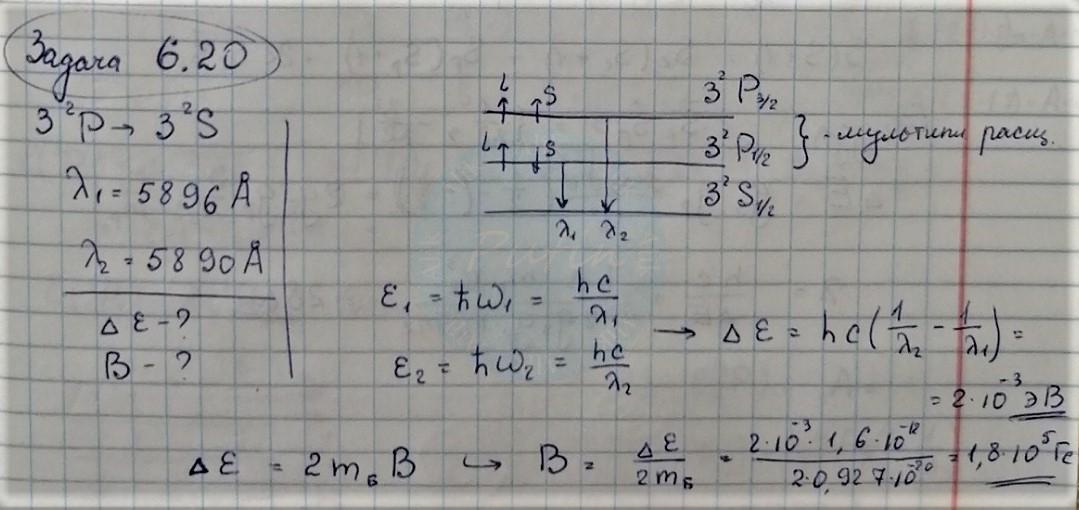 Задача 6.20
3²P → 3²S
λ₁ = 5896 Å
λ₂ = 5890 Å
Δε - ?
B - ?
L S 3²P₃/₂
L S 3²P₁/₂ } - мультипл расщ.
3²S₁/₂
λ₁ λ₂
ε₁ = ħω₁ = hc/λ₁
ε₂ = ħω₂ = hc/λ₂
→ Δε = hc(1/λ₂ - 1/λ₁) =
= 2·10⁻³ эВ
Δε = 2m_Б B ↪ B = Δε/2m_Б = 2·10⁻³·1,6·10⁻¹²/2·0,927·10⁻²⁰ = 1,8·10⁵ Гс